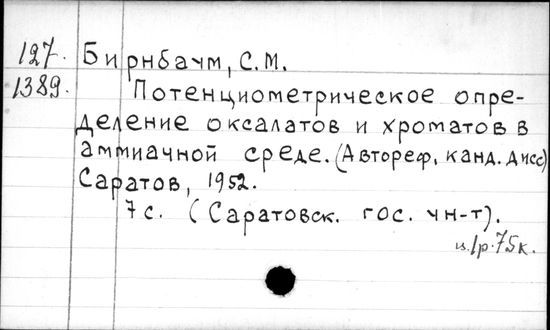 127. Бирнбаум, С.М.
1389. Потенциометрическое опре-
деление оксалатов и хроматов в
аммиачной среде. (Автореф. канд. дисс)
Саратов, 1952.
7 с. (Саратовск. гос. ун-т).
ц. 1р.75к.